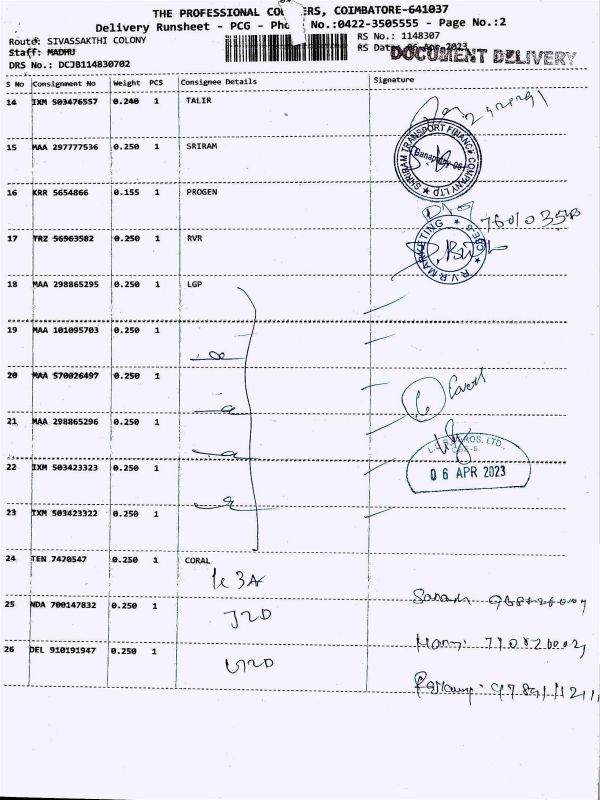 THE PROFESSIONAL COURIERS, COIMBATORE-641037
Delivery Runsheet - PCG - Phone No.:0422-3505555 - Page No.:2
Route: SIVASSAKTHI COLONY
RS No.: 1148307
Staff: MADHU
RS Date: 06-Apr-2023
DOCUMENT DELIVERY
DRS No.: DCJB114830702
S No Consignment No Weight PCS Consignee Details Signature
14 IXM 503476557 0.240 1 TALIR
15 MAA 297777536 0.250 1 SRIRAM
SHRIRAM TRANSPORT FINANCE COMPANY LTD
16 KRR 5654866 0.155 1 PROGEN
17 TRZ 56963582 0.250 1 RVR
RVR MARKETING CBE-6
18 MAA 298865295 0.250 1 LGP
19 MAA 101095703 0.250 1
20 MAA 570026497 0.250 1
21 MAA 298865296 0.250 1
22 IXM 503423323 0.250 1
06 APR 2023
23 IXM 503423322 0.250 1
24 TEN 7420547 0.250 1 CORAL
25 NDA 700147832 0.250 1
26 DEL 910191947 0.250 1